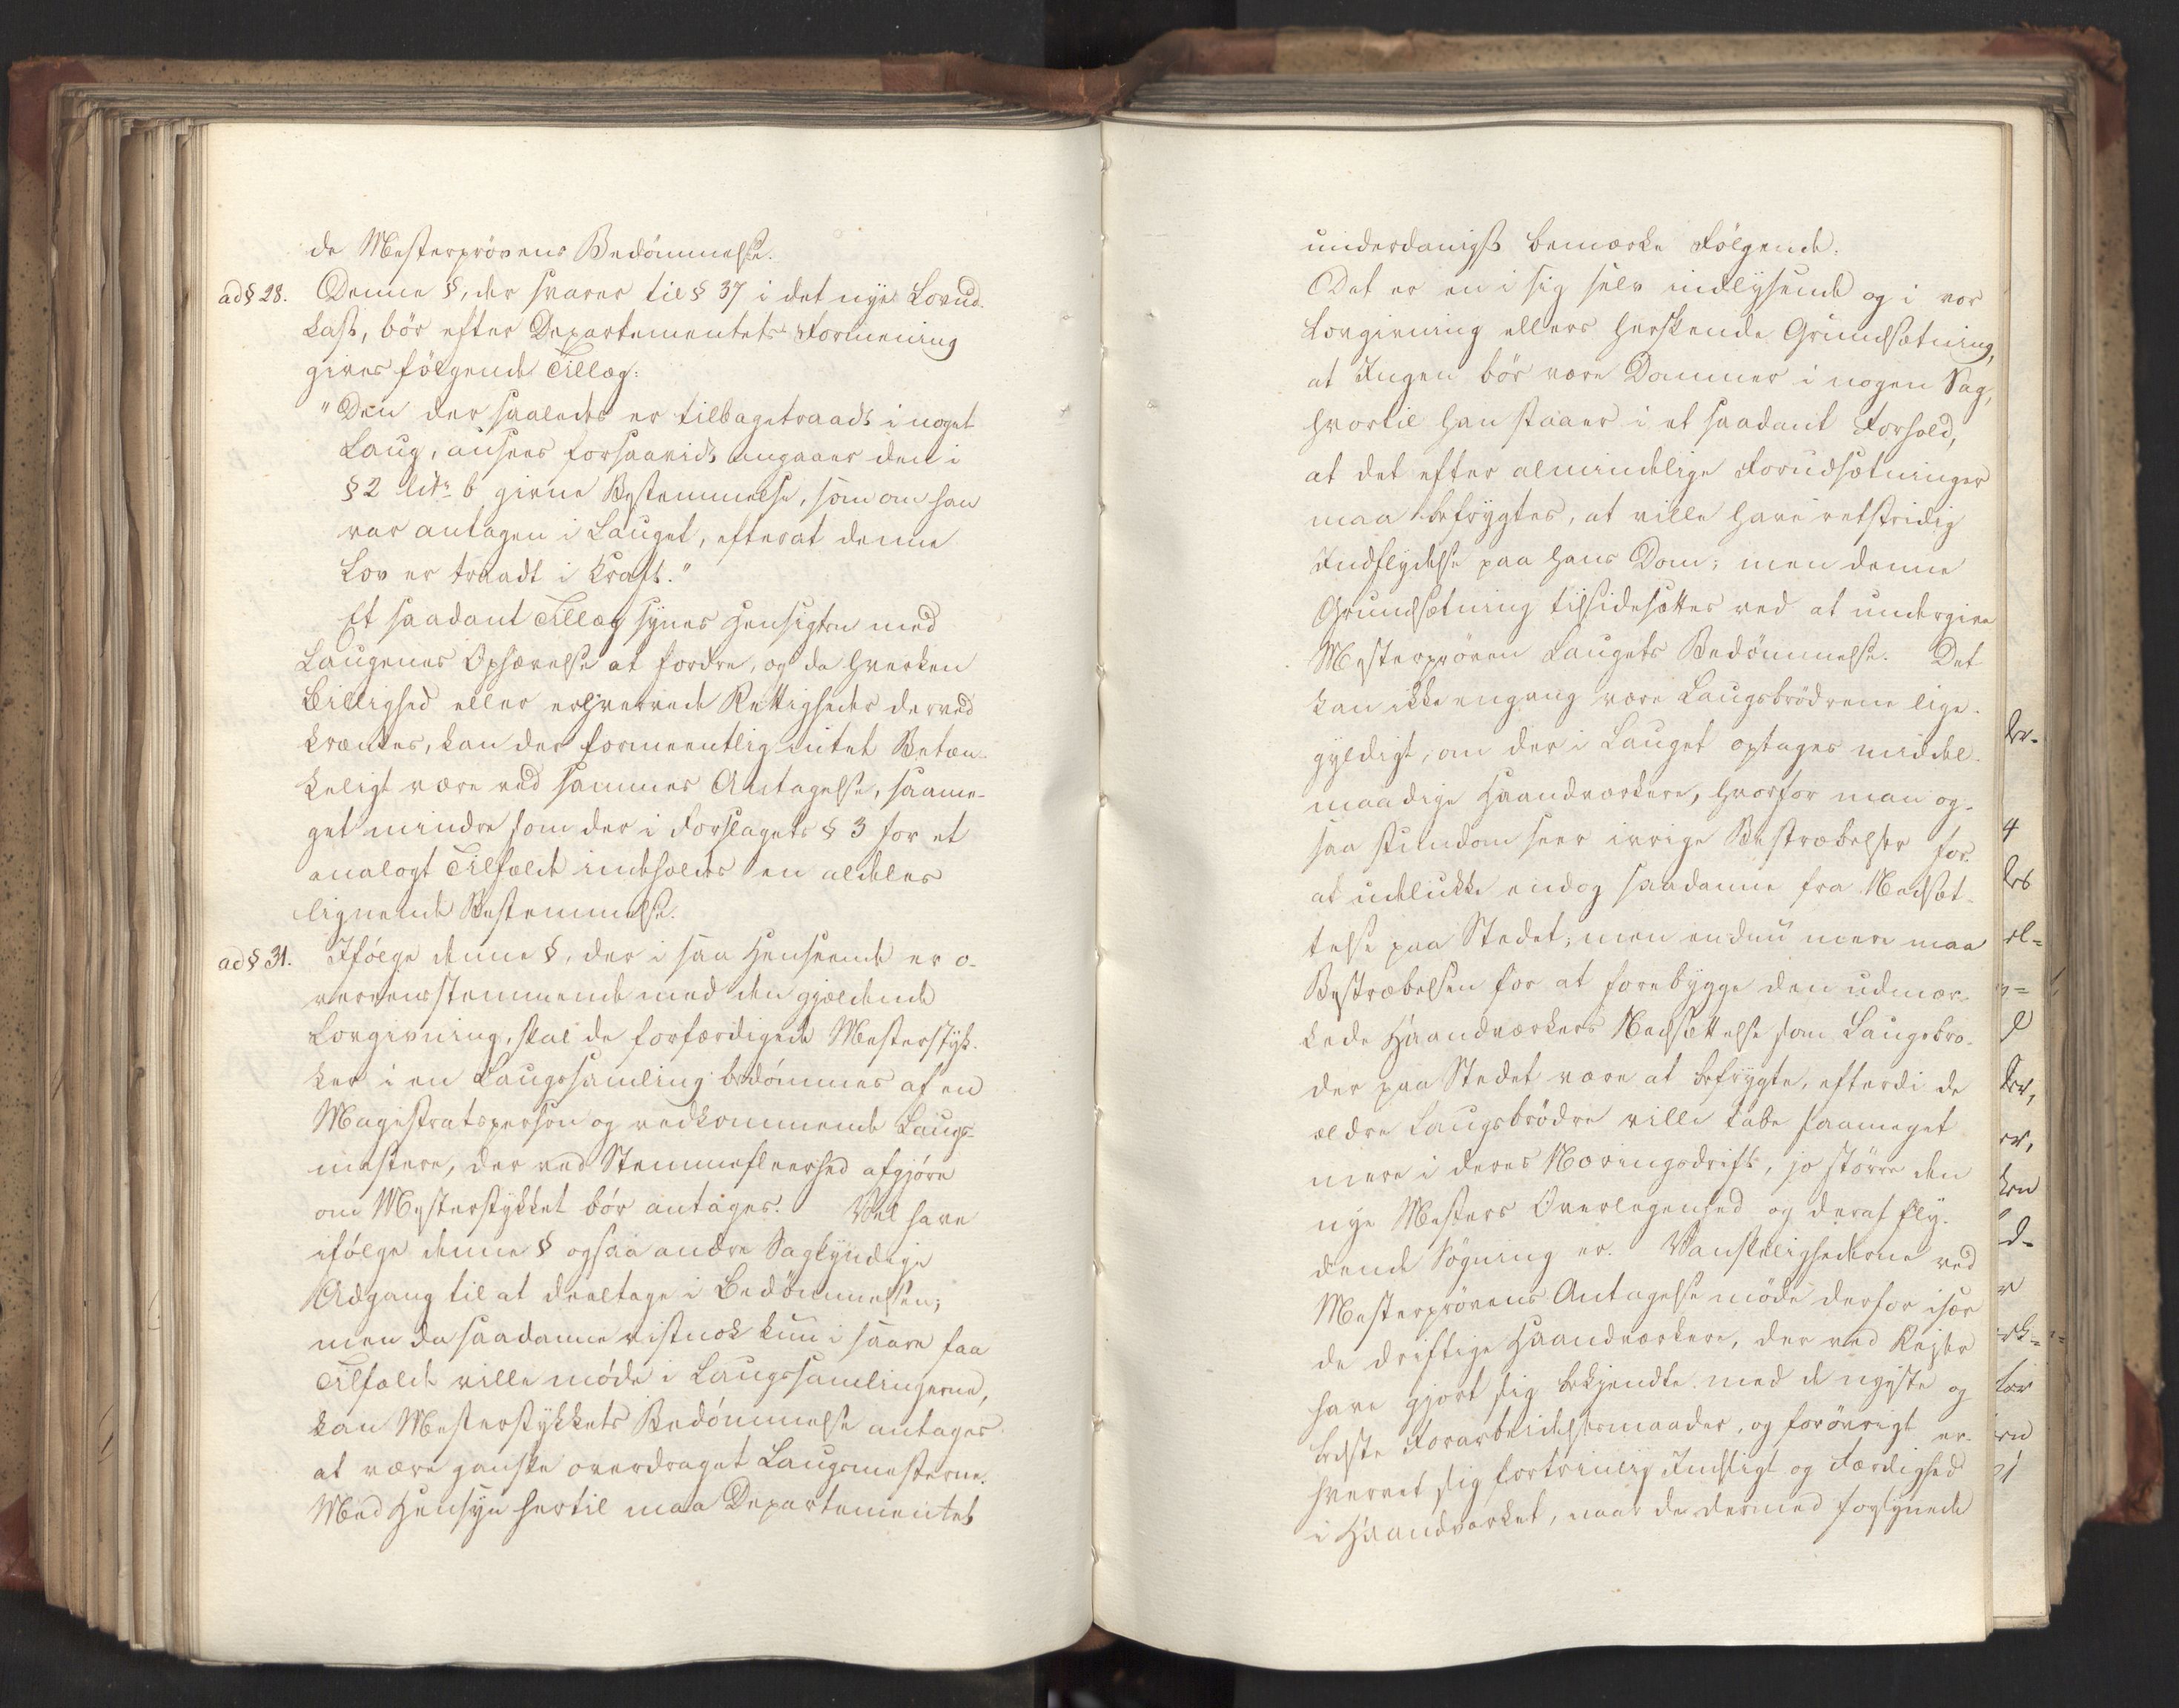 de Mesterprövens Bedömmelse.
ad § 28. Denne §, der svarer til § 37 i det nye Lovud-
kast, bör efter Departementets Formening
gives fölgende Tillæg:
"Den der saaledes er tilbagetraadt i noget
Laug, ansees forsaavidt angaaer den i
§ 2 litr b givne Bestemmelse, som om han
var antagen i Lauget, efterat denne
Lov er traadt i Kraft."
Et saadant Tillæg synes Hensigten med
Laugenes Ophævelse at fordre, og da hverken
Billighed eller erhvervede Rettigheder derved
krænkes, kan der formeentlig intet Betæn-
keligt være ved sammes Antagelse, saame-
get mindre som der i Forslagets § 3 for et
analogt Tilfælde indeholdes en aldeles
lignende Bestemmelse.
ad § 31. Ifölge denne §, der i saa Henseende er o-
vereensstemmende med den gjældende
Lovgivning, skal de forfærdigede Mesterstyk-
ker i en Laugssamling bedömmes af en
Magistratsperson og vedkommende Laugs-
mestere, der ved Stemmefleerhed afgjöre
om Mesterstykket bör antages. Vel have
ifölge denne § ogsaa andre Sagkyndige
Adgang til at deeltage i Bedömmelsen;
men da saadanne vistnok kun i saare faa
Tilfælde ville möde i Laugssamlingerne,
kan Mesterstykkets Bedömmelse antages
at være ganske overdraget Laugsmesterne.
Med Hensyn hertil maa Departementet
underdanigst bemærke Fölgende:
Det er en i sig selv indlysende og i vor
Lovgivning ellers herskende Grundsætning,
at Ingen bör være Dommer i nogen Sag,
hvortil han staaer i et saadant Forhold,
at det efter almindelige Forudsætninger
maa befrygtes, at ville have retstridig
Indflydelse paa hans Dom; men denne
Grundsætning tilsidesættes ved at undergive
Mesterpröven Laugets Bedömmelse. Det
kan ikke engang være Laugsbrödrene lige-
gyldigt, om der i Lauget optages middel-
maadige Haandværkere, hvorfor man og-
saa stundom seer ivrige Bestræbelser for
at udelukke endog saadanne fra Nedsæt-
telse paa Stedet; men endnu mere maa
Bestræbelsen for at forebygge den udmær-
kede Haandværkers Nedsættelse som Laugsbro-
der paa Stedet være at befrygte, efterdi de
ældre Laugsbrödre ville tabe saameget
mere i deres Næringsdrift, jo större den
nye Mesters Overlegenhed og deraf fly-
dende Sögning er. Vanskelighederne ved
Mesterprövens Antagelse möde derfor især
de driftige Haandværkere, der ved Rejser
have gjort sig bekjendte med de nyeste og
bedste Forarbeidelsesmaader, og forövrigt er-
hvervet sig fortrinlig Indsigt og Færdighed
i Haandværket, naar de dermed forsynede